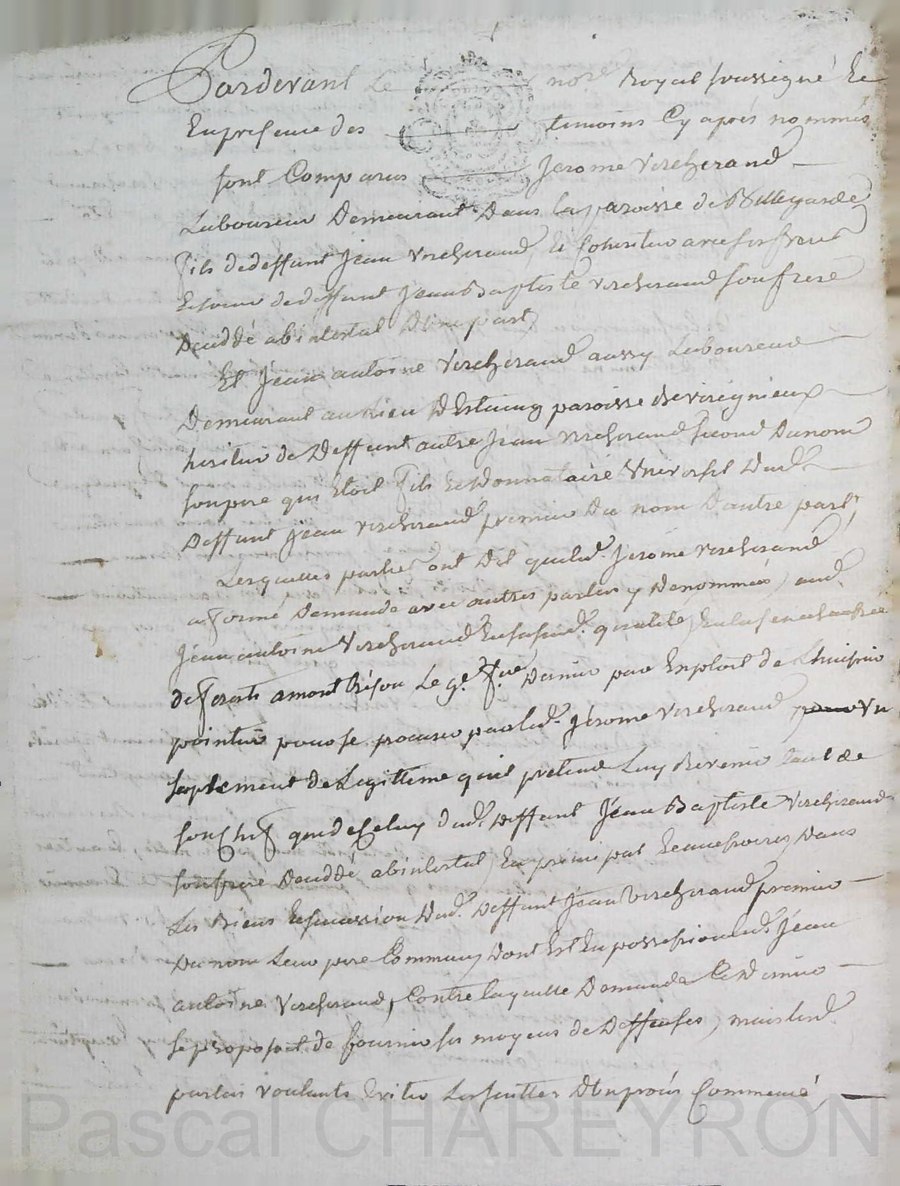 Pardevant Le no.re Royal soussigné Et
En presence des temoins Cy après nommés
sont Comparus Jerome Vercherand
Laboureur Demeurant Dans la paroisse de Bellegarde
fils de deffunt Jean Vercherand, Et Coheritier avec ses freres
Et soeur de deffunt Jean Baptiste Vercherand son frere
Decedé abintestat D'une part
Et Jean antoine Vercherand aussy Laboureur
Demeurant au Lieu D'Estaing paroisse de virignieux
heritier de Deffunt autre Jean Vercherand second Du nom
son pere qui Etoit fils Et Donnataire Vniversel Dud.
Deffunt Jean Vercherand premier Du nom D'autre part,
Lesquelles parties ont Dit que led. Jerome Vercherand
a formé Demande avec autres parties y Denommés, aud.
Jean antoine Vercherand En sa susd. qualité, En la senechaussée
de forests a montbrison Le 9.e Dernier par Exploit de L'huissier
pointu pour se procurer par led. Jérome Vercherand, Vn
suplement de Legittime qu'il pretend Luy Revenir Tant de
son Chef que de Celuy dud. Deffunt Jean Baptiste Vercherand
son frere Decedé abintestat, En principal Et accessoires, Dans
Les Biens Et succession Dud. Deffunt Jean Vercherand premier
Du nom Leur pere Commun, Dont Est En possession led. Jean
antoine Vercherand, Contre laquelle Demande Ce Dernier
se proposoit de fournir ses moyens de Deffenses, mais lesd.
parties voulants Eviter Les suittes D'un procés Commencé,
Pascal CHAREYRON